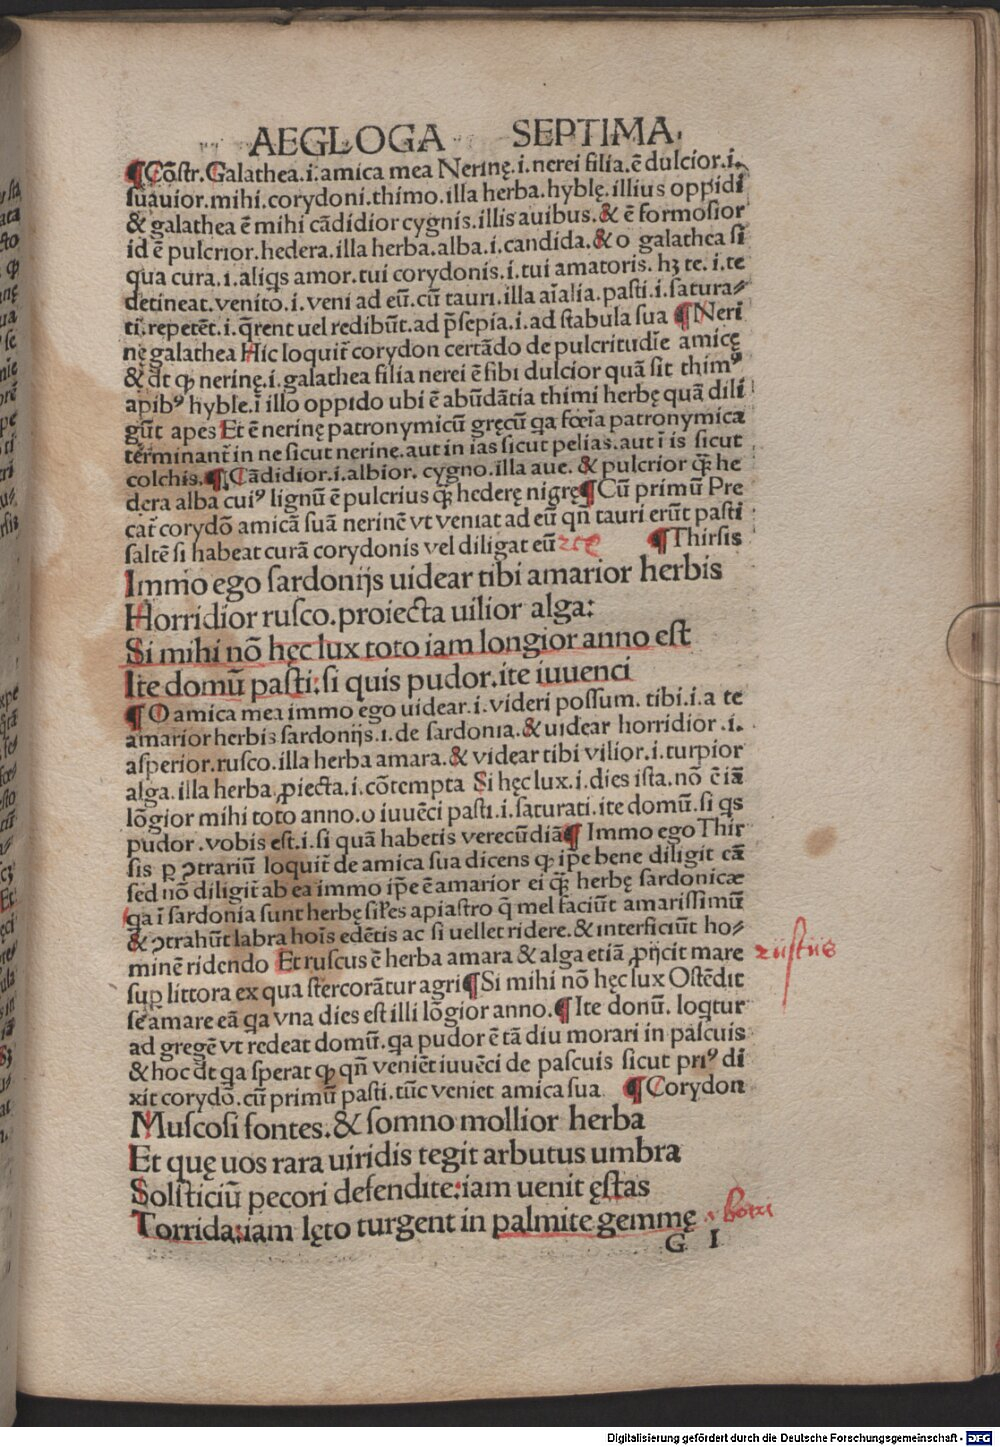 AEGLOGA SEPTIMA.
¶Cōſtr. Galathea.i.amica mea Nerinę.i.nerei filia.ē dulcior.i.
ſuauior.mihi.corydoni.thimo.illa herba.hyblę.illius oppidi
& galathea ē mihi cādidior cygnis.illis auibus.& ē formoſior
id ē pulcrior.hedera.illa herba.alba.i.candida.& o galathea ſi
qua cura.i.aliqs amor.tui corydonis.i.tui amatoris. hꝫ te.i.te
detineat.venito.i.veni ad eū.cū tauri.illa aīalia.paſti.i.ſatura⸗
ti.repetēt.i.q̄rent uel redibūt.ad p̄ſepia.i.ad ſtabula ſua ¶Neri
nę galathea Hic loquit̄ corydon certādo de pulcritudīe amicę
& dt̄ ꝙ nerinę.i.galathea filia nerei ē ſibi dulcior quā ſit thimꝰ
apibꝰ hyble.ī illo oppido ubi ē abūdātia thimi herbę quā dili
gūt apes Et ē nerinę patronymicū gręcū qa fœīa patronymica
terminant̄ in ne ſicut nerine.aut in ias ſicut pelias.aut ī is ſicut
colchis.¶Cādidior.i.albior. cygno.illa aue. & pulcrior q̄ꝫ he
dera alba cuiꝰ lignū ē pulcrius q̄ꝫ hederę nigrę¶Cū primū Pre
cat̄ corydō amicā ſuā nerinē vt veniat ad eū qn̄ tauri erūt paſti
ſaltē ſi habeat curā corydonis vel diligat eū ¶Thirſis
Immo ego ſardonijs uidear tibi amarior herbis
Horridior ruſco.proiecta uilior alga:
Si mihi nō hęc lux toto iam longior anno eſt
Ite domū paſti:ſi quis pudor.ite iuuenci
¶O amica mea immo ego uidear.i.videri poſſum. tibi.i.a te
amarior herbis ſardonijs.i.de ſardonia.& uidear horridior .i.
aſperior.ruſco.illa herba amara.& videar tibi vilior.i.turpior
alga.illa herba.ꝓiecta.i.cōtempta Si hęc lux.i.dies iſta.nō ē iā
lōgior mihi toto anno.o iuuēci paſti.i.ſaturati.ite domū.ſi qs
pudor .vobis eſt.i.ſi quā habetis verecūdiā¶ Immo ego Thir
ſis p ɔtrariū loquit̄ de amica ſua dicens ꝙ ip̄e bene diligit eā
ſed nō diligit̄ ab ea immo ip̄e ē amarior ei q̄ꝫ herbę ſardonicæ
qa ī ſardonia ſunt herbę ſiꝉes apiaſtro q̄ mel faciūt amariſſimū
& ɔtrahūt labra hoīs edētis ac ſi uellet ridere.& interficiūt ho⸗
minē ridendo Et ruſcus ē herba amara & alga etiā ꝓijcit mare
ſuꝑ littora ex qua ſtercorātur agri¶Si mihi nō hęc lux Oſtēdit
ſe amare eā qa vna dies eſt illi lōgior anno.¶Ite donū. loqtur
ad gregē vt redeat domū.qa pudor ē tā diu morari in paſcuis
& hoc dt̄ qa ſperat ꝙ qn̄ veniēt iuuēci de paſcuis ſicut priꝰ di
xit corydō.cū primū paſti.tūc veniet amica ſua ¶Corydon
Muſcoſi fontes.& ſomno mollior herba
Et quę uos rara uiridis tegit arbutus umbra
Solſticiū pecori defendite:iam uenit ęſtas
Torrida:iam lęto turgent in palmite gemmę
G I
Digitalisierung gefördert durch die Deutsche Forschungsgemeinschaft - DFG